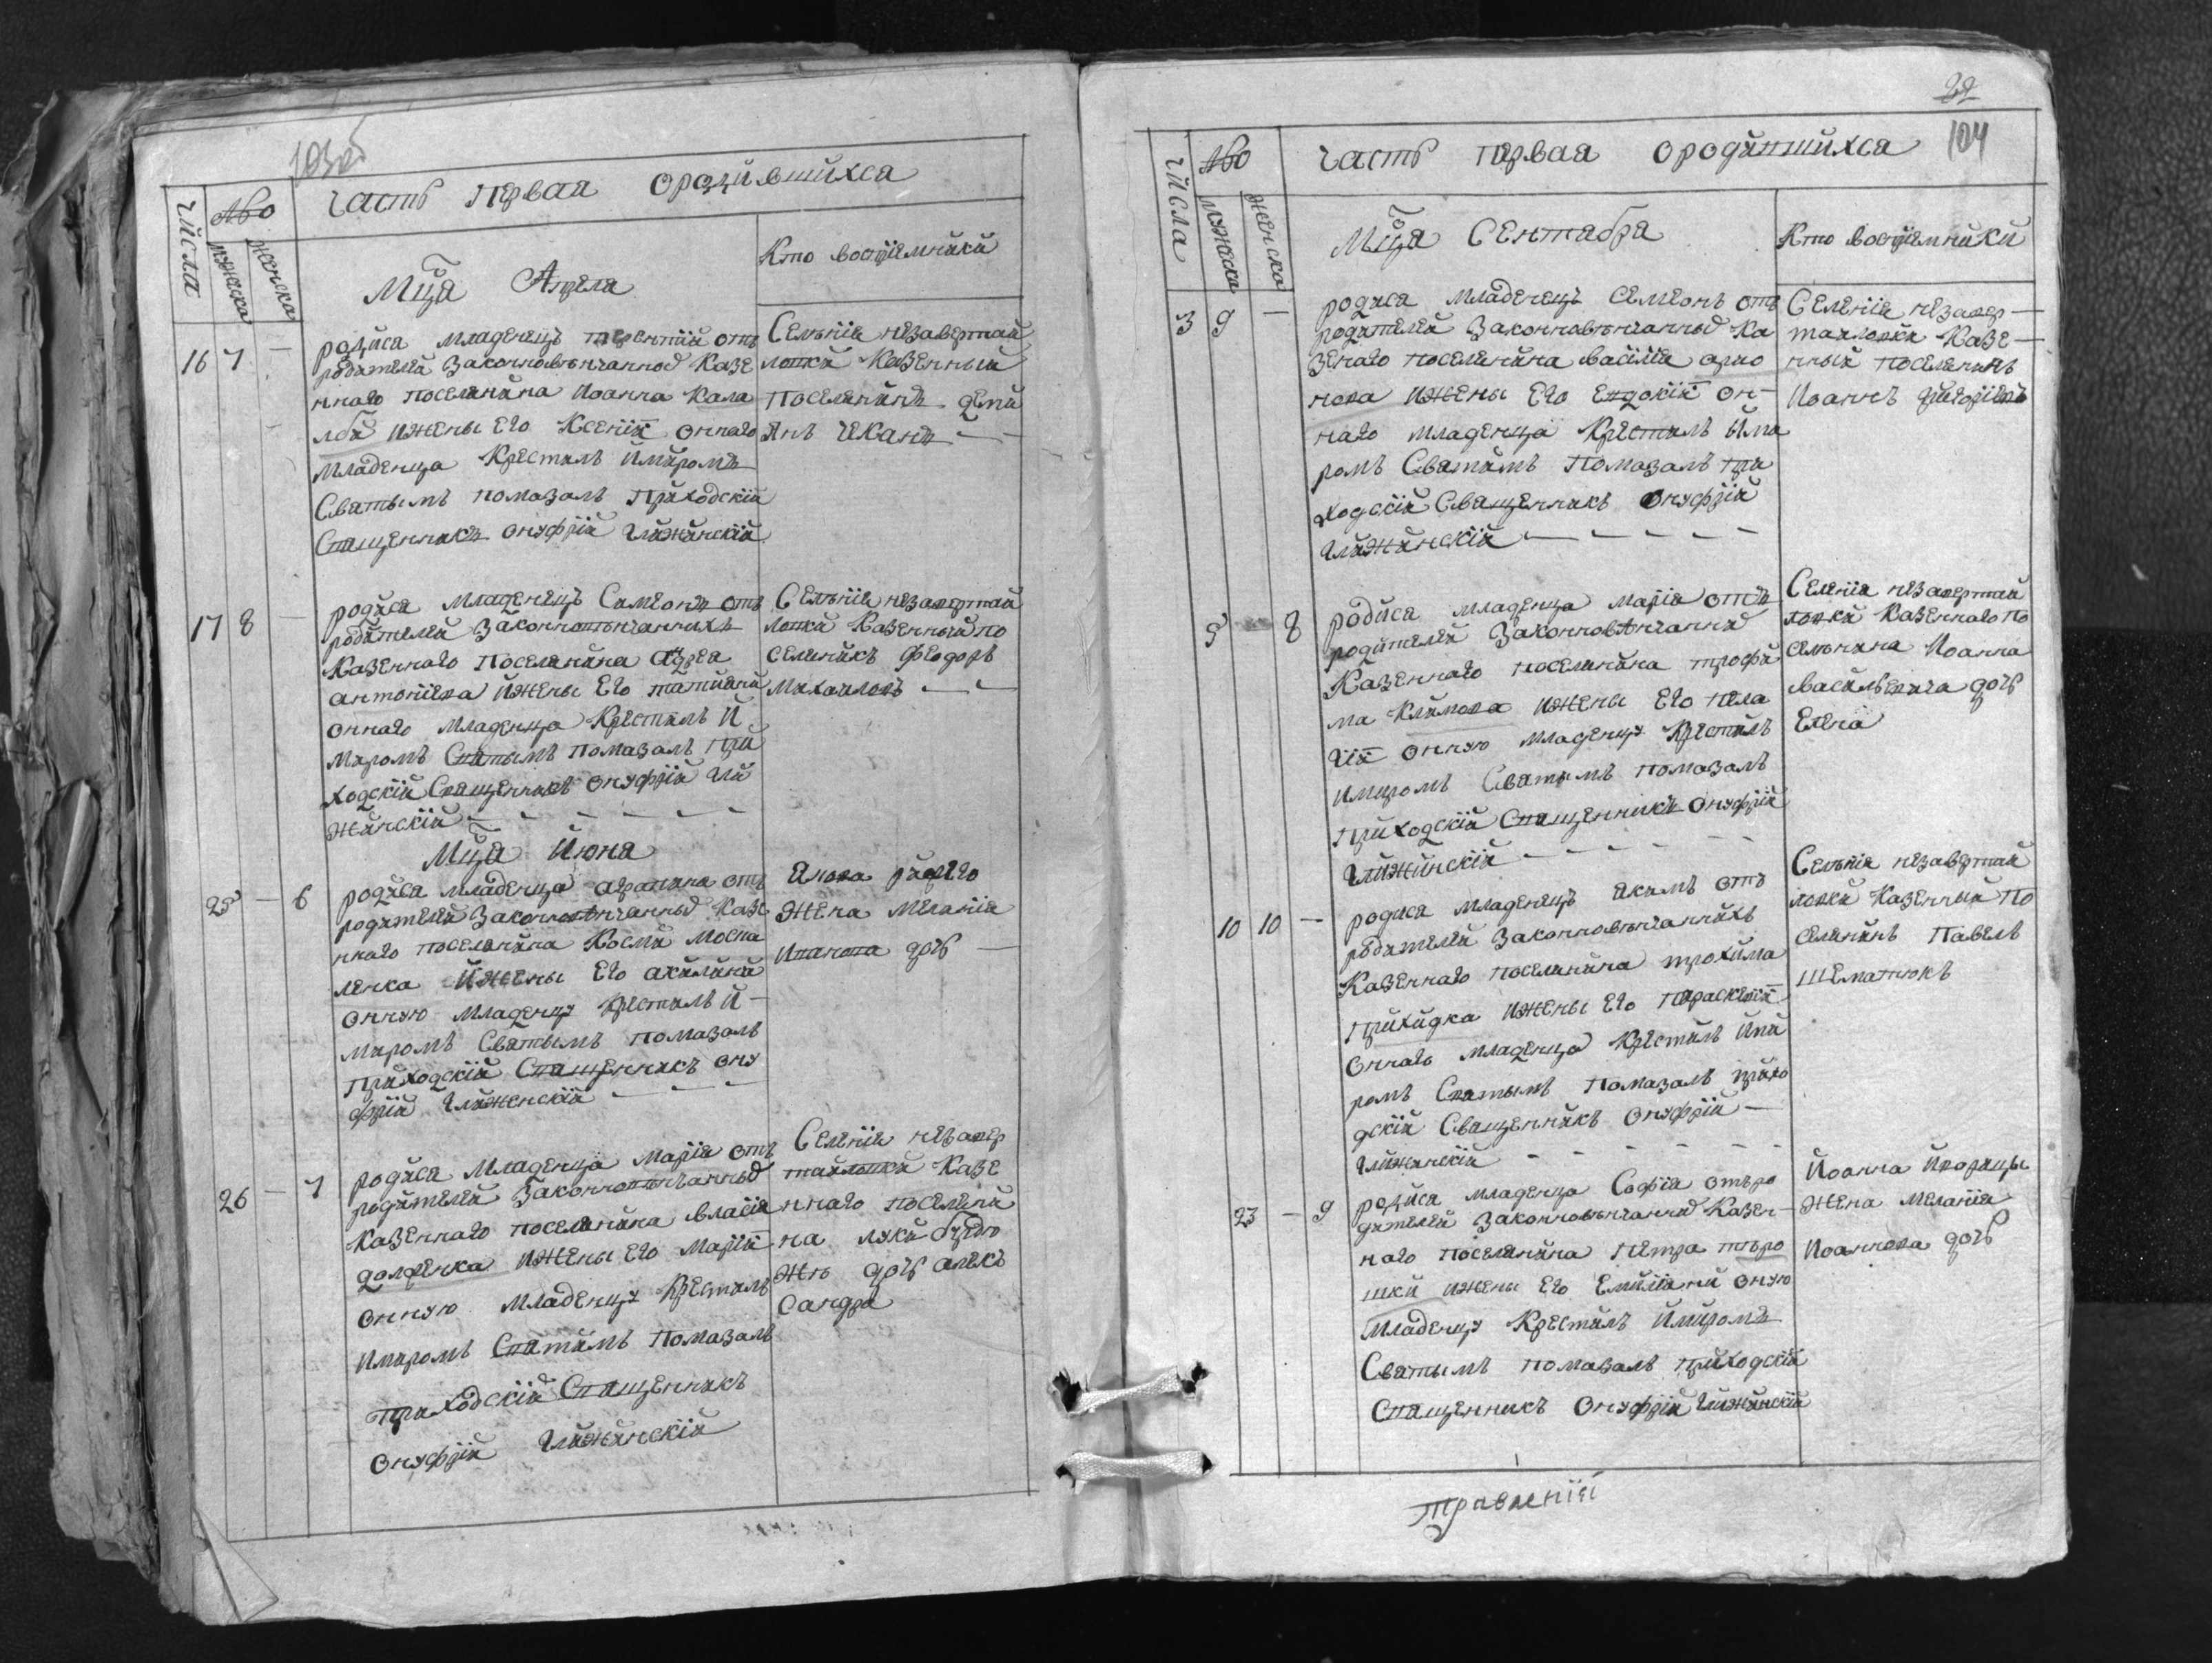 103об
часть первая ородившихся
числа
Аво
мужеска
женска
Мца Апрела
Кто восприемники
16 7 — родиса младенецъ терентий отъ
родителей Законновѣнчанных Казе
ннаго поселянина Иоанна Кала
ижены Его Ксении оннаго
младенца Крестилъ имиромъ
Святымъ помазалъ Приходский
Священникъ онуфрий Чижинский
Селѣния незавертай
ловки Казенный
Поселянинъ Деми
Янъ
17 8 — родиса младенецъ Симеонъ отъ
родителей Законновѣнчанныхъ
Казеннаго Поселянина
антониева ижены Его татияни
оннаго младенца Крестилъ и
миромъ Святымъ помазалъ при
ходский Священникъ онуфрий Чи
жинский
Селѣния незавертай
ловки Казенный по
селянинъ феодоръ
Михаиловъ
Мца Июня
25 — 6 родиса младенца агрипина отъ
родителей Законновѣнчанных Казе
ннаго поселянина Косми Моска
ленка ижены Его акилини
онную младенцу крестилъ и
миромъ Святымъ помазалъ
приходский Священникъ ону
фрий Чиженский
Жена Мелания
Иванова дочь
26 — 7 родиса Младенца Мария отъ
родителей Законновѣнчанных
Казеннаго поселянина власия
ижены Его Марии
онную младенцу Крестилъ
имиромъ Святимъ помазалъ
приходский Священникъ
онуфрий Чижинский
Селения незавер
тайловки Казе
ннаго поселяни
на луки
дочь алекъ
сандра
22
104
числа
Аво
мужеска
женска
часть первая ородившихся
Мца Сентабра
Кто восприемники
3 9 — родиса младенецъ Семионъ отъ
родителей Законновѣнчанных Ка
зенаго поселянина василия
ижены Его Евдокии он-
наго младенца Крестилъ има
ромъ Святимъ Помазалъ при
ходский Священникъ Онуфрий
Чижинский
Селения незавер—
тайловки Казе—
нный поселянинъ
Иоаннъ григориевъ
9 — 8 родиса младенца мария отъ
родителей Законновѣнчанных
Казеннаго поселянина трофи
ма Климова ижены Его пела
гии онную младенцу Крестилъ
имиромъ Святымъ помазалъ
приходский Священникъ онуфрий
Чижинский
Селения незавертай
ловки Казеннаго по
селянина Иоанна
Василевича дочь
Елена
10 10 — родиса младенецъ Якимъ отъ
родителей Законновѣнчаннихъ
Казеннаго поселянина трохима
Приходка ижены Его параскевии
оннаго младенца Крестилъ ими
ромъ Святымъ Помазалъ прихо
дский Священникъ онуфрий
Чижинский
Селѣния незавертай
ловки Казенный По
селянинъ Павелъ
Шематюкъ
23 — 9 родиса младенца София отъро
дителей Законновѣнчанных Казен—
наго поселянина Петра
ижены Его Емилияни оную
младенцу Крестилъ имиромъ
Святымъ помазалъ приходский
Священникъ Онуфрий Чижинский
Иоанна
Жена Мелания
Иоаннова дочь